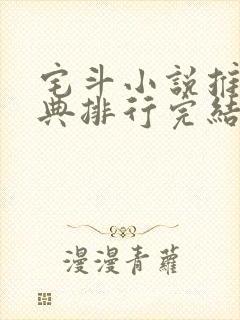 宅斗小說推
典排行完結
漫漫青蘿